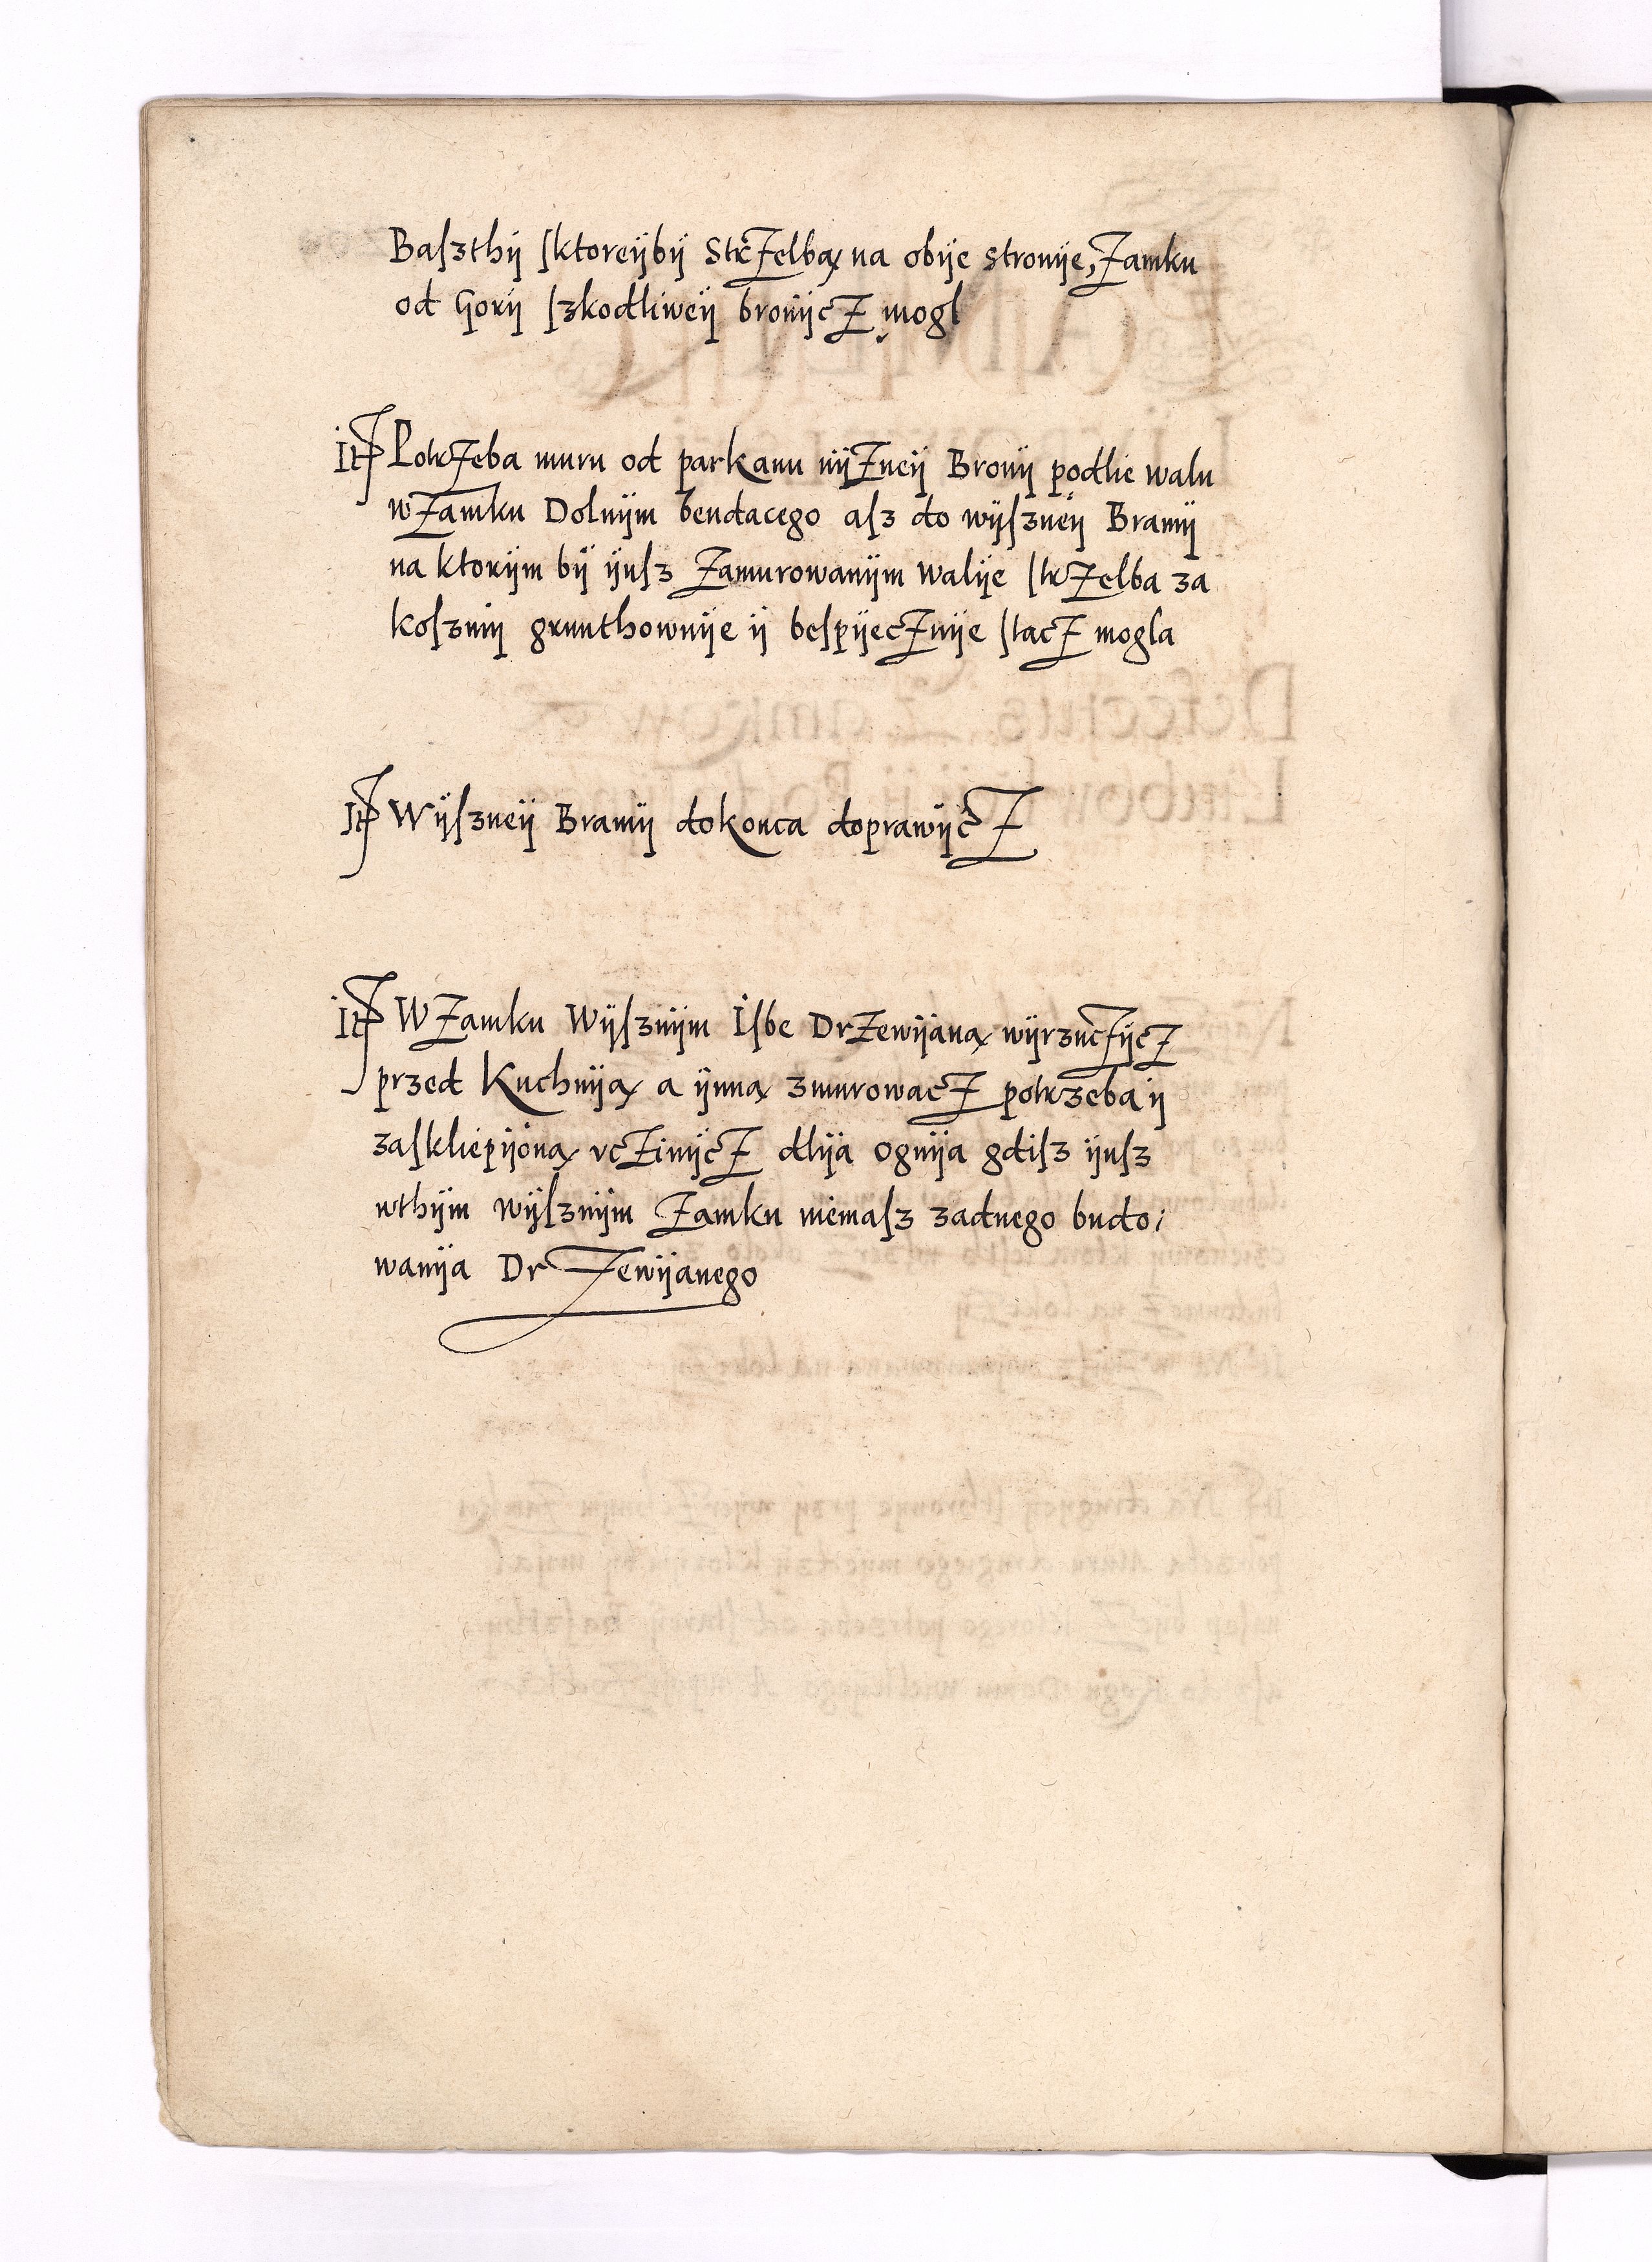 Baſzthÿ ſktoreÿbÿ StrZelbą na obÿe stronÿe, Zamku
od Gorÿ ſzkodliweÿ bronÿcZ mogl
It Potrzeba muru od parkanu nÿZneÿ Bronÿ podlie walu
wZamku Dolnÿm bendacego aſz do wÿſzneÿ Bramÿ
na ktorÿm bÿ ÿuſz Zamurowanÿm walÿe ſtrZelba za
koſzmÿ grunthownÿe ÿ beſpÿecZnÿe ſtacZ mogla
It Wÿſzneÿ Bramÿ dokonca doprawÿcZ
It WZamku Wÿſznÿm Iſbe DrZewÿaną wÿrzucZÿcZ
przed Kuchnÿą a ÿnną zmurowacZ potrzeba ÿ
zaſkliepÿoną vcZinÿcZ dlÿa ognÿa gdiſz ÿuſz
wthÿm wÿſznÿm Zamku niemaſz zadnego budo:
wanÿa DrZewÿanego